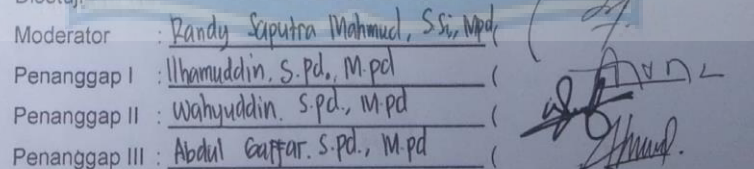 Disetuj:
Moderator : Randy Saputra Mahmud, S.Si, Mpd, (
Penanggap I : Ilhamuddin. S.pd., M.pd (
Penanggap II : Wahyuddin. S.pd., M.pd (
Penanggap III : Abdul Gaffar. S.pd., M.pd (